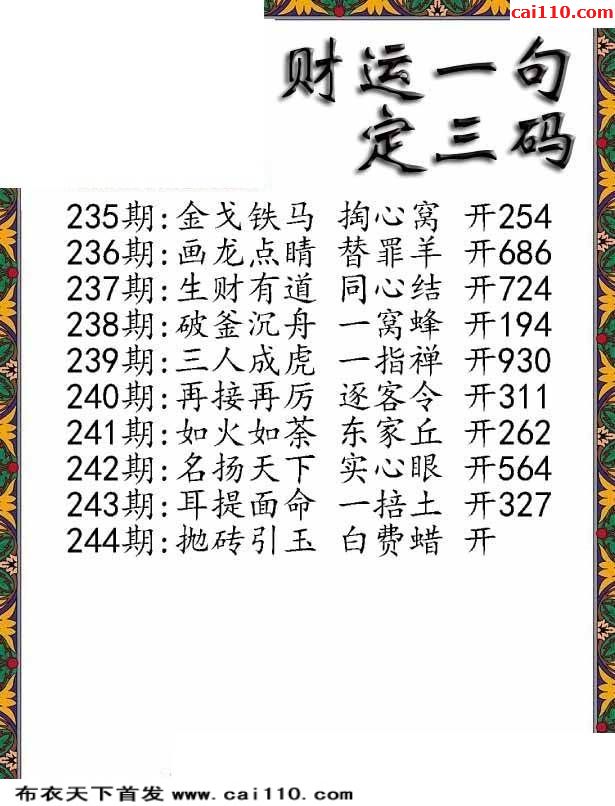 cai110.com
财运一句
定三码
235期:金戈铁马 掏心窝 开254
236期:画龙点睛 替罪羊 开686
237期:生财有道 同心结 开724
238期:破釜沉舟 一窝蜂 开194
239期:三人成虎 一指禅 开930
240期:再接再厉 逐客令 开311
241期:如火如荼 东家丘 开262
242期:名扬天下 实心眼 开564
243期:耳提面命 一掊土 开327
244期:抛砖引玉 白费蜡 开
布衣天下首发 www.cai110.com